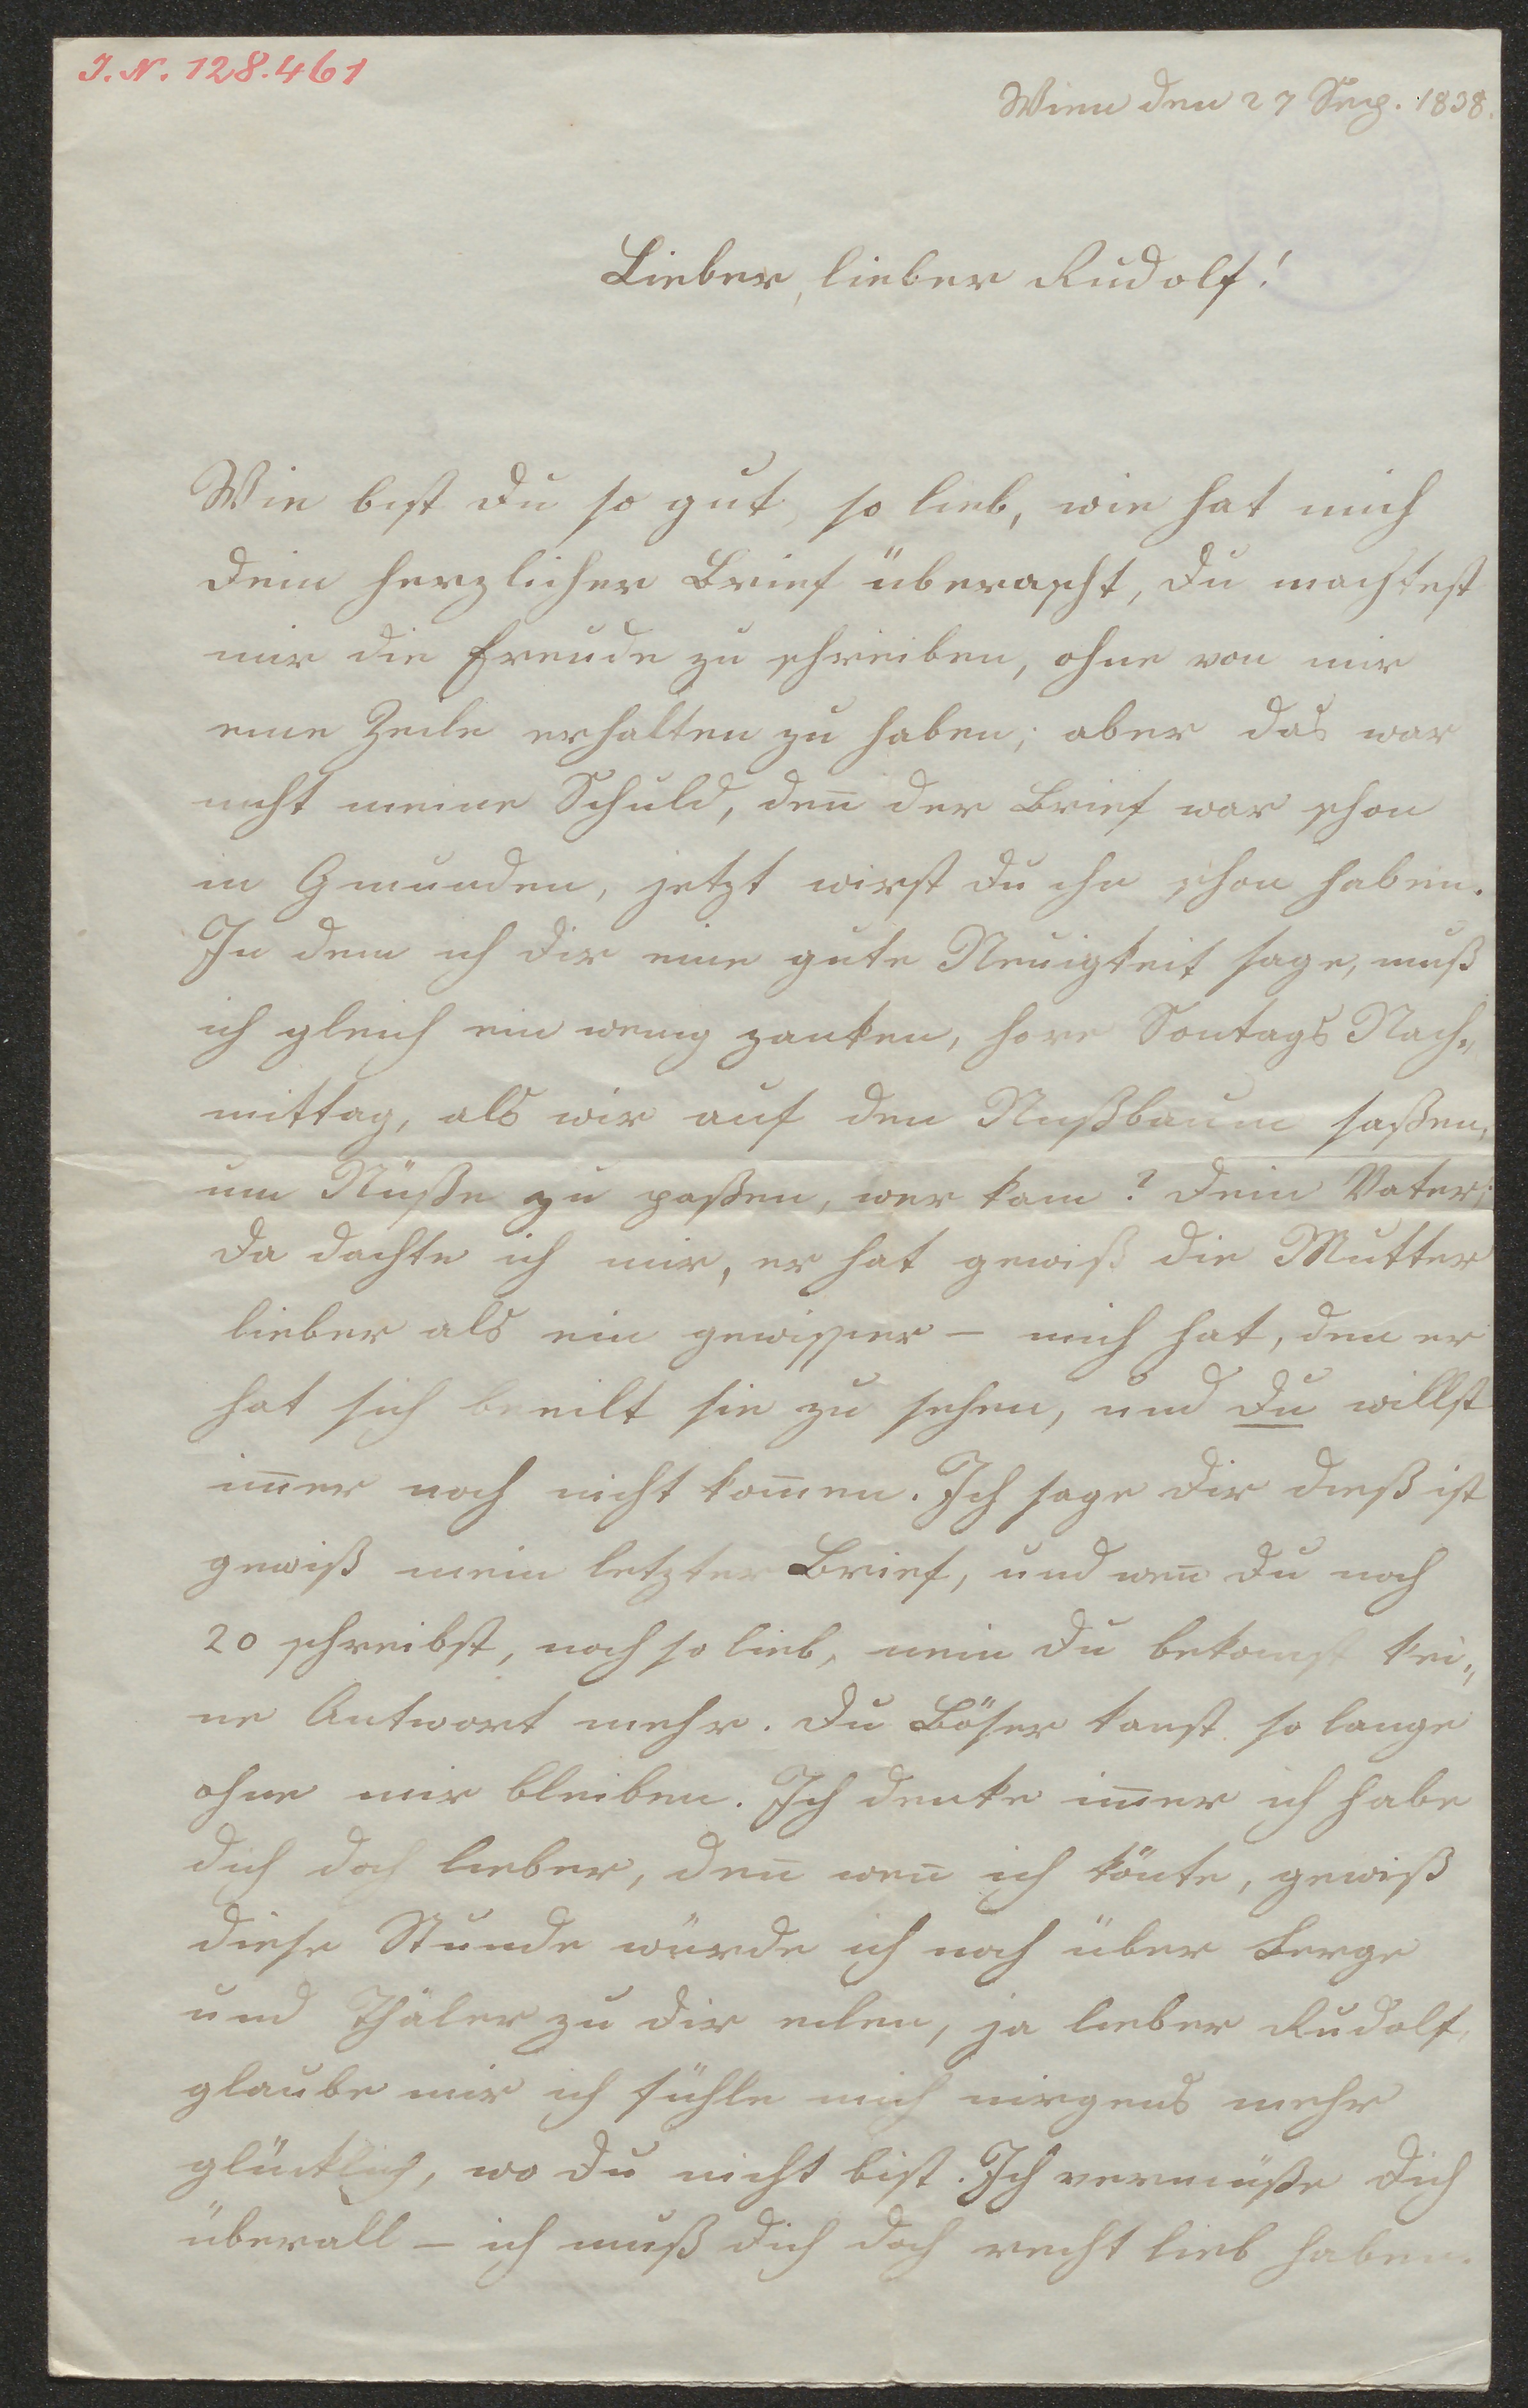 I.N. 128.461
Wien den 27 Sep. 1838.
Lieber, lieber Rudolf!
Wie bist du so gut, so lieb, wie hat mich
dein herzlicher Brief überascht, du machtest
mir die Freude zu schreiben, ohne von mir
eine Zeile erhalten zu haben; aber das war
nicht meine Schuld, den̄ der Brief war schon
in Gmunden, jetzt wirst du ihn schon haben.
In dem ich dir eine gute Neuigkeit sage, muß
ich gleich ein wenig zanken, höre Sontags Nach„
mittag, als wir auf den Nußbaum saßen,
um Nüße zu paßen, wer kam? dein Vater;
da dachte ich mir, er hat gewiß die Mutter
lieber als ein gewisser – mich hat, den er
hat sich beeilt sie zu sehen, und du willst
im̄er noch nicht kom̄en. Ich sage dir dieß ist
gewiß mein letzter Brief, und wen̄ du noch
20 schreibst, noch so lieb, nein du bekomst kei„
ne Antwort mehr. Du Böser kanst so lange
ohne mir bleiben. Ich denke im̄er ich habe
dich doch lieber, den̄ wen̄ ich könte, gewiß
diese Stunde würde ich noch über Berge
und Thäler zu dir eilen, ja lieber Rudolf,
glaube mir ich fühle mich nirgens mehr
glücklich, wo du nicht bist. Ich vermüße dich
überall – ich muß dich doch recht lieb haben.